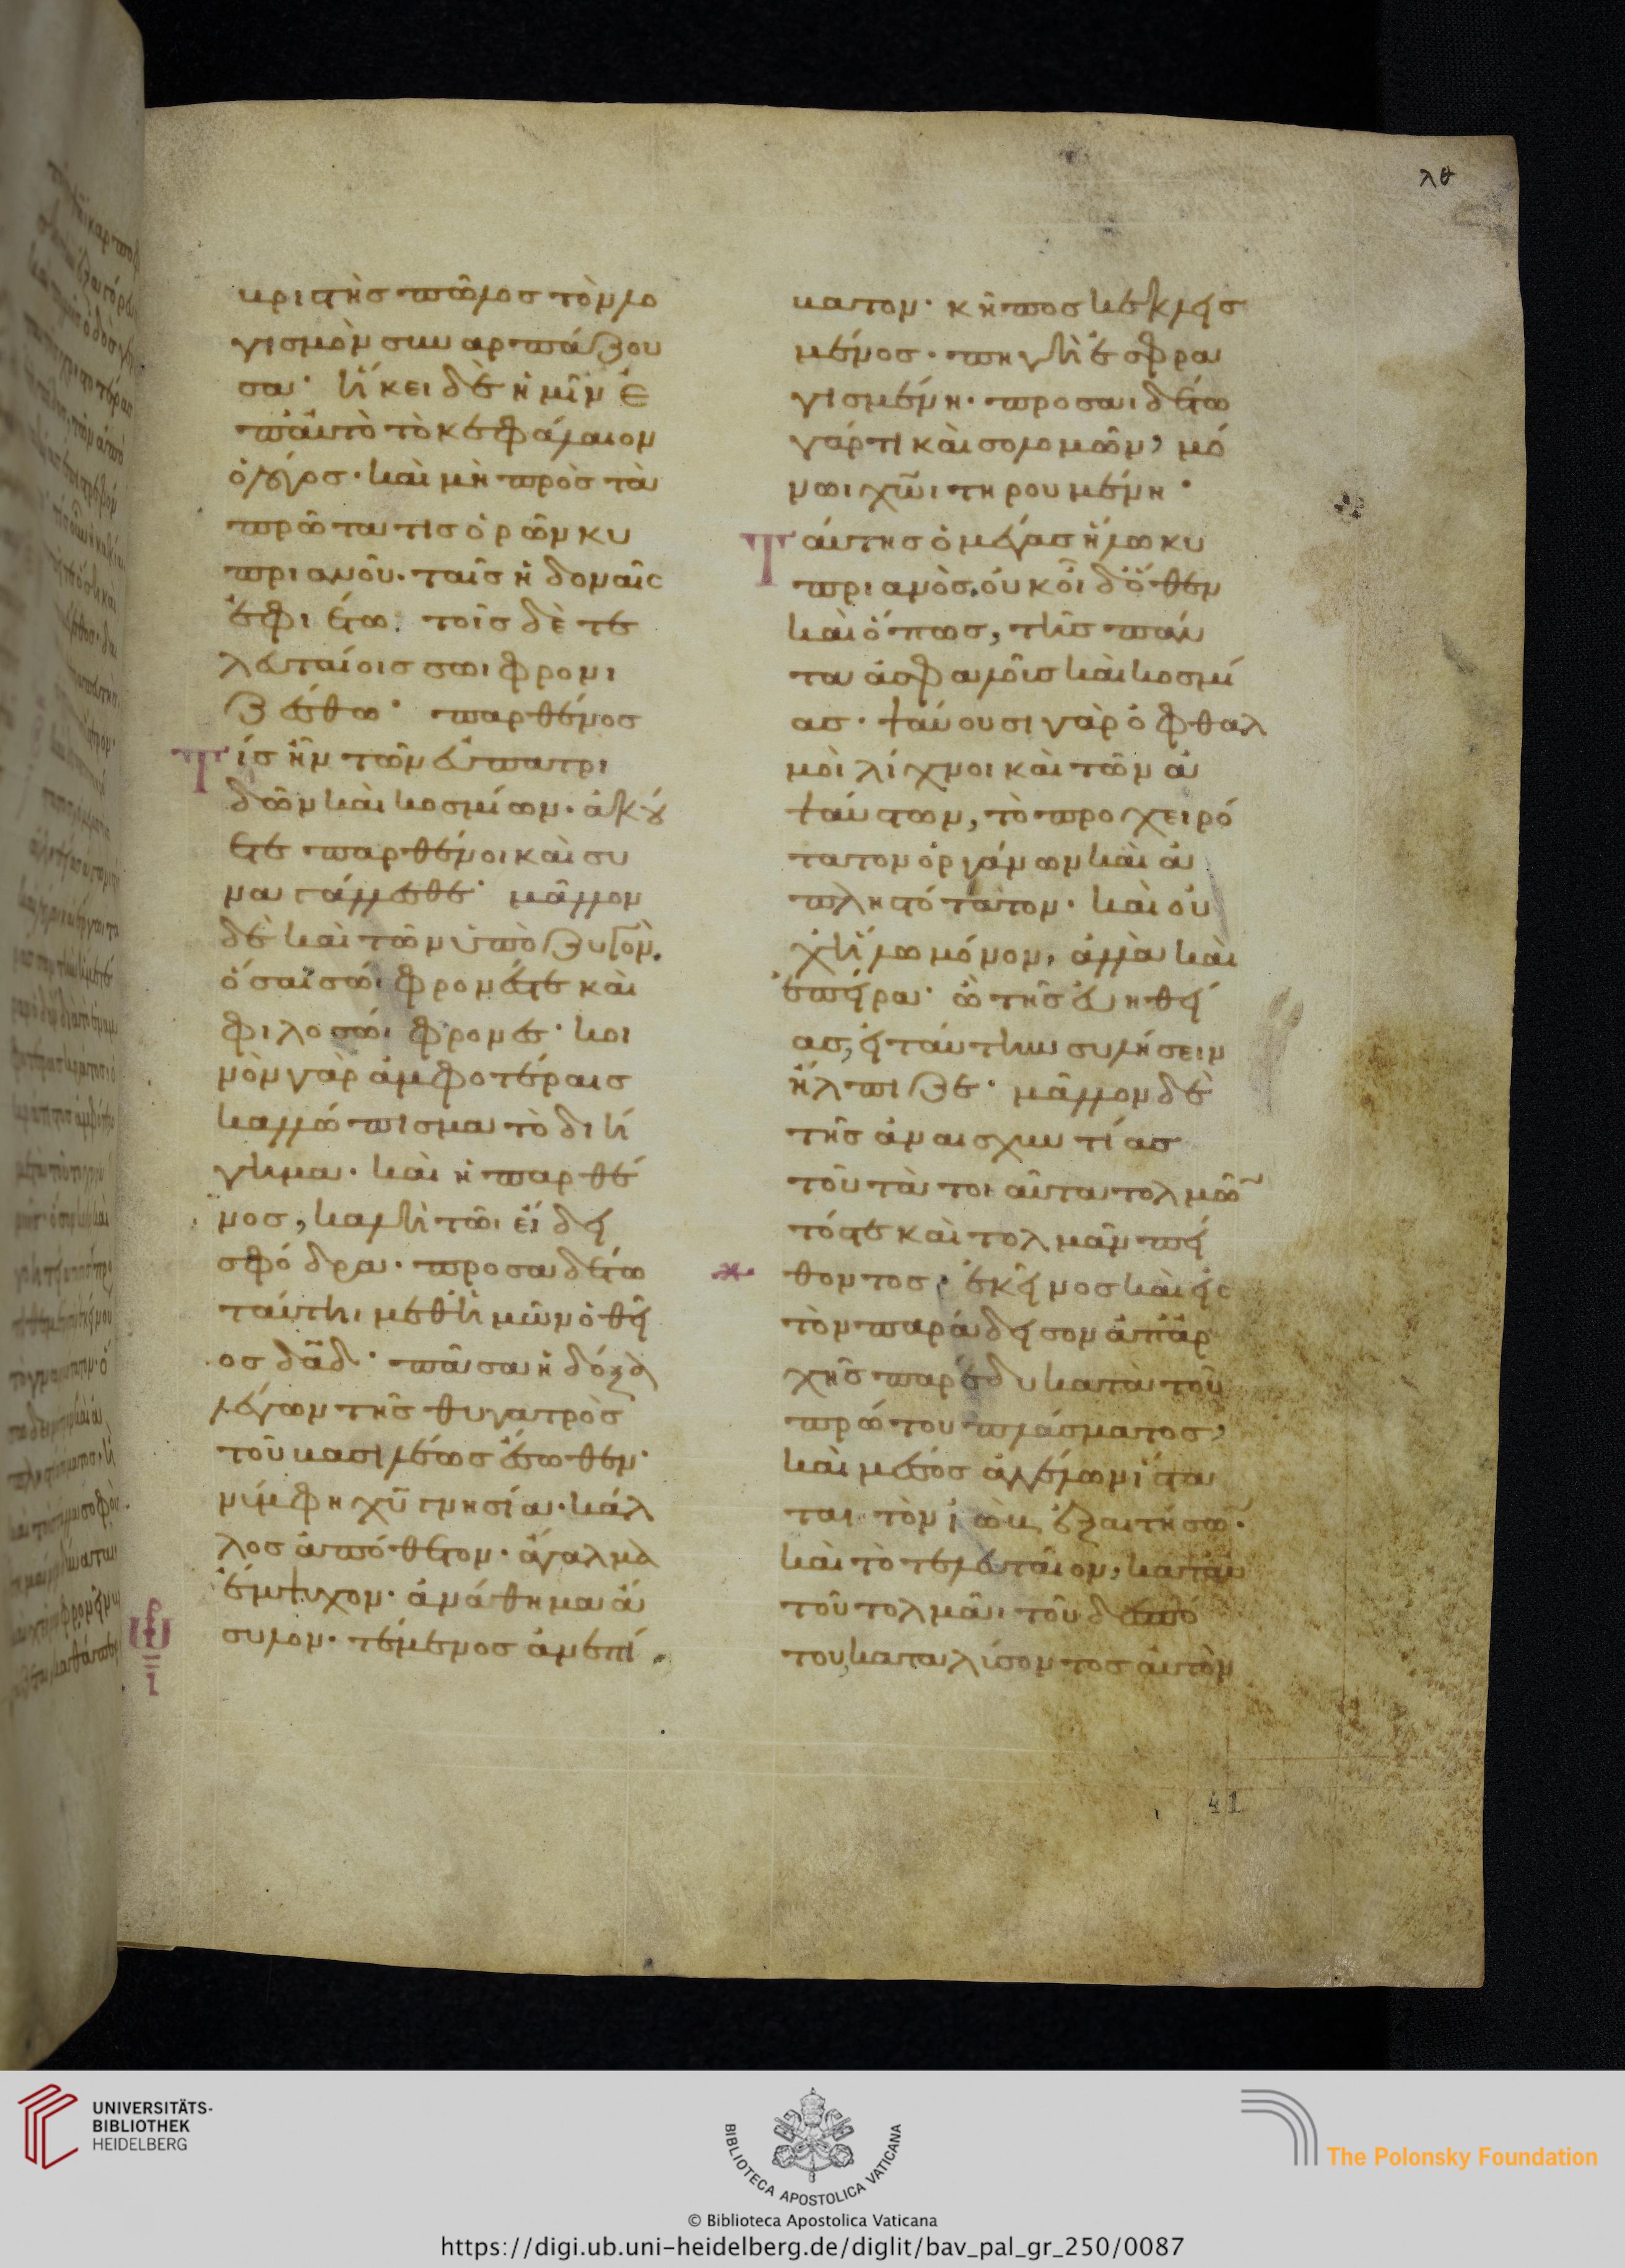 λθ
βριστὴς πῶλος τὸν λο
γισμὸν συναρπάζου
σα· ἥκει δὲ ἡμῖν ἐ
π' αὐτὸ τὸ κεφάλαιον
ὁ λόγος· καὶ μὴ πρὸς τὰ
πρῶτα τις ὁρῶν κυ
πριανοῦ· ταῖς ἡδοναῖς
ἐφιέτω· τοῖς δὲ τε
λευταίοις σωφρονι
ζέσθω· παρθένος
Τίς ἦν τῶν εὐπατρι
δῶν καὶ κοσμίων· ἀκού
ετε παρθένοι καὶ συ
ναγάλλεσθε· μᾶλλον
δὲ καὶ τῶν ὑπὸ ζυγὸν.
ὅσαι σώφρονές τε καὶ
φιλοσώφρονες· κοι
νὸν γὰρ ἀμφοτέραις
καλλώπισμα τὸ διή
γημα· καὶ ἡ παρθέ
νος, καλὴ τῶι εἴδει
σφόδρα· προσαδέτω
ταύτηι μεθ' ἡμῶν ὁ θεῖ
ος δᾶδ· πᾶσα ἡ δόξα
λέγων τῆς θυγατρὸς
τοῦ βασιλέως ἔσωθεν·
νύμφη χῦ γνησία· κάλ
λος ἀπόθετον· ἄγαλμα
ἔμψυχον· ἀνάθημα ἄ
συλον· τέμενος ἀνεπί
βατον· κῆπος κεκλεισ
μένος· πηγὴ ἐσφρα
γισμένη· προσαιδέτω
γάρ τι καὶ σολομῶν, μό
νωι χῶι τηρουμένη·
Ταύτης ὁ μέγας ἥλω κυ
πριανὸς· οὐκ οἶδ' ὅθεν
καὶ ὅπως, τῆς πάν
τα ἀσφαλοῦς καὶ κοσμί
ας· ψαύουσι γὰρ ὀφθαλ
μοὶ λίχνοι καὶ τῶν ἀ
ψαύστων, τὸ προχειρό
τατον ὀργάνων καὶ ἀ
πληστότατον· καὶ οὐ
χ' ἥλω μόνον, ἀλλὰ καὶ
ἐπείρα· ὢ τῆς εὐηθεί
ας, εἰ ταύτην συλήσειν
ἤλπιζε· μᾶλλον δὲ
τῆς ἀναισχυντίας
τοῦ τὰ τοιαῦτα τολμῶ
τός τε καὶ τολμᾶν πεί
θοντος· ἐκεῖνος καὶ εἰς
τὸν παράδεισον ἀπ' ἀρ
χῆς παρέδυ κατὰ τοῦ
πρώτου πλάσματος,
καὶ μέσος ἀγγέλων ἵστα
ται τὸν ἰὼβ ἐξαιτήσω·
καὶ τὸ τελευταῖον, κατ' αὐ
τοῦ τολμᾶι τοῦ δεσπό
του καταλύσοντος αὐτὸν
41
UNIVERSITÄTS-
BIBLIOTHEK
HEIDELBERG
BIBLIOTECA APOSTOLICA VATICANA
The Polonsky Foundation
© Biblioteca Apostolica Vaticana
https://digi.ub.uni-heidelberg.de/diglit/bav_pal_gr_250/0087